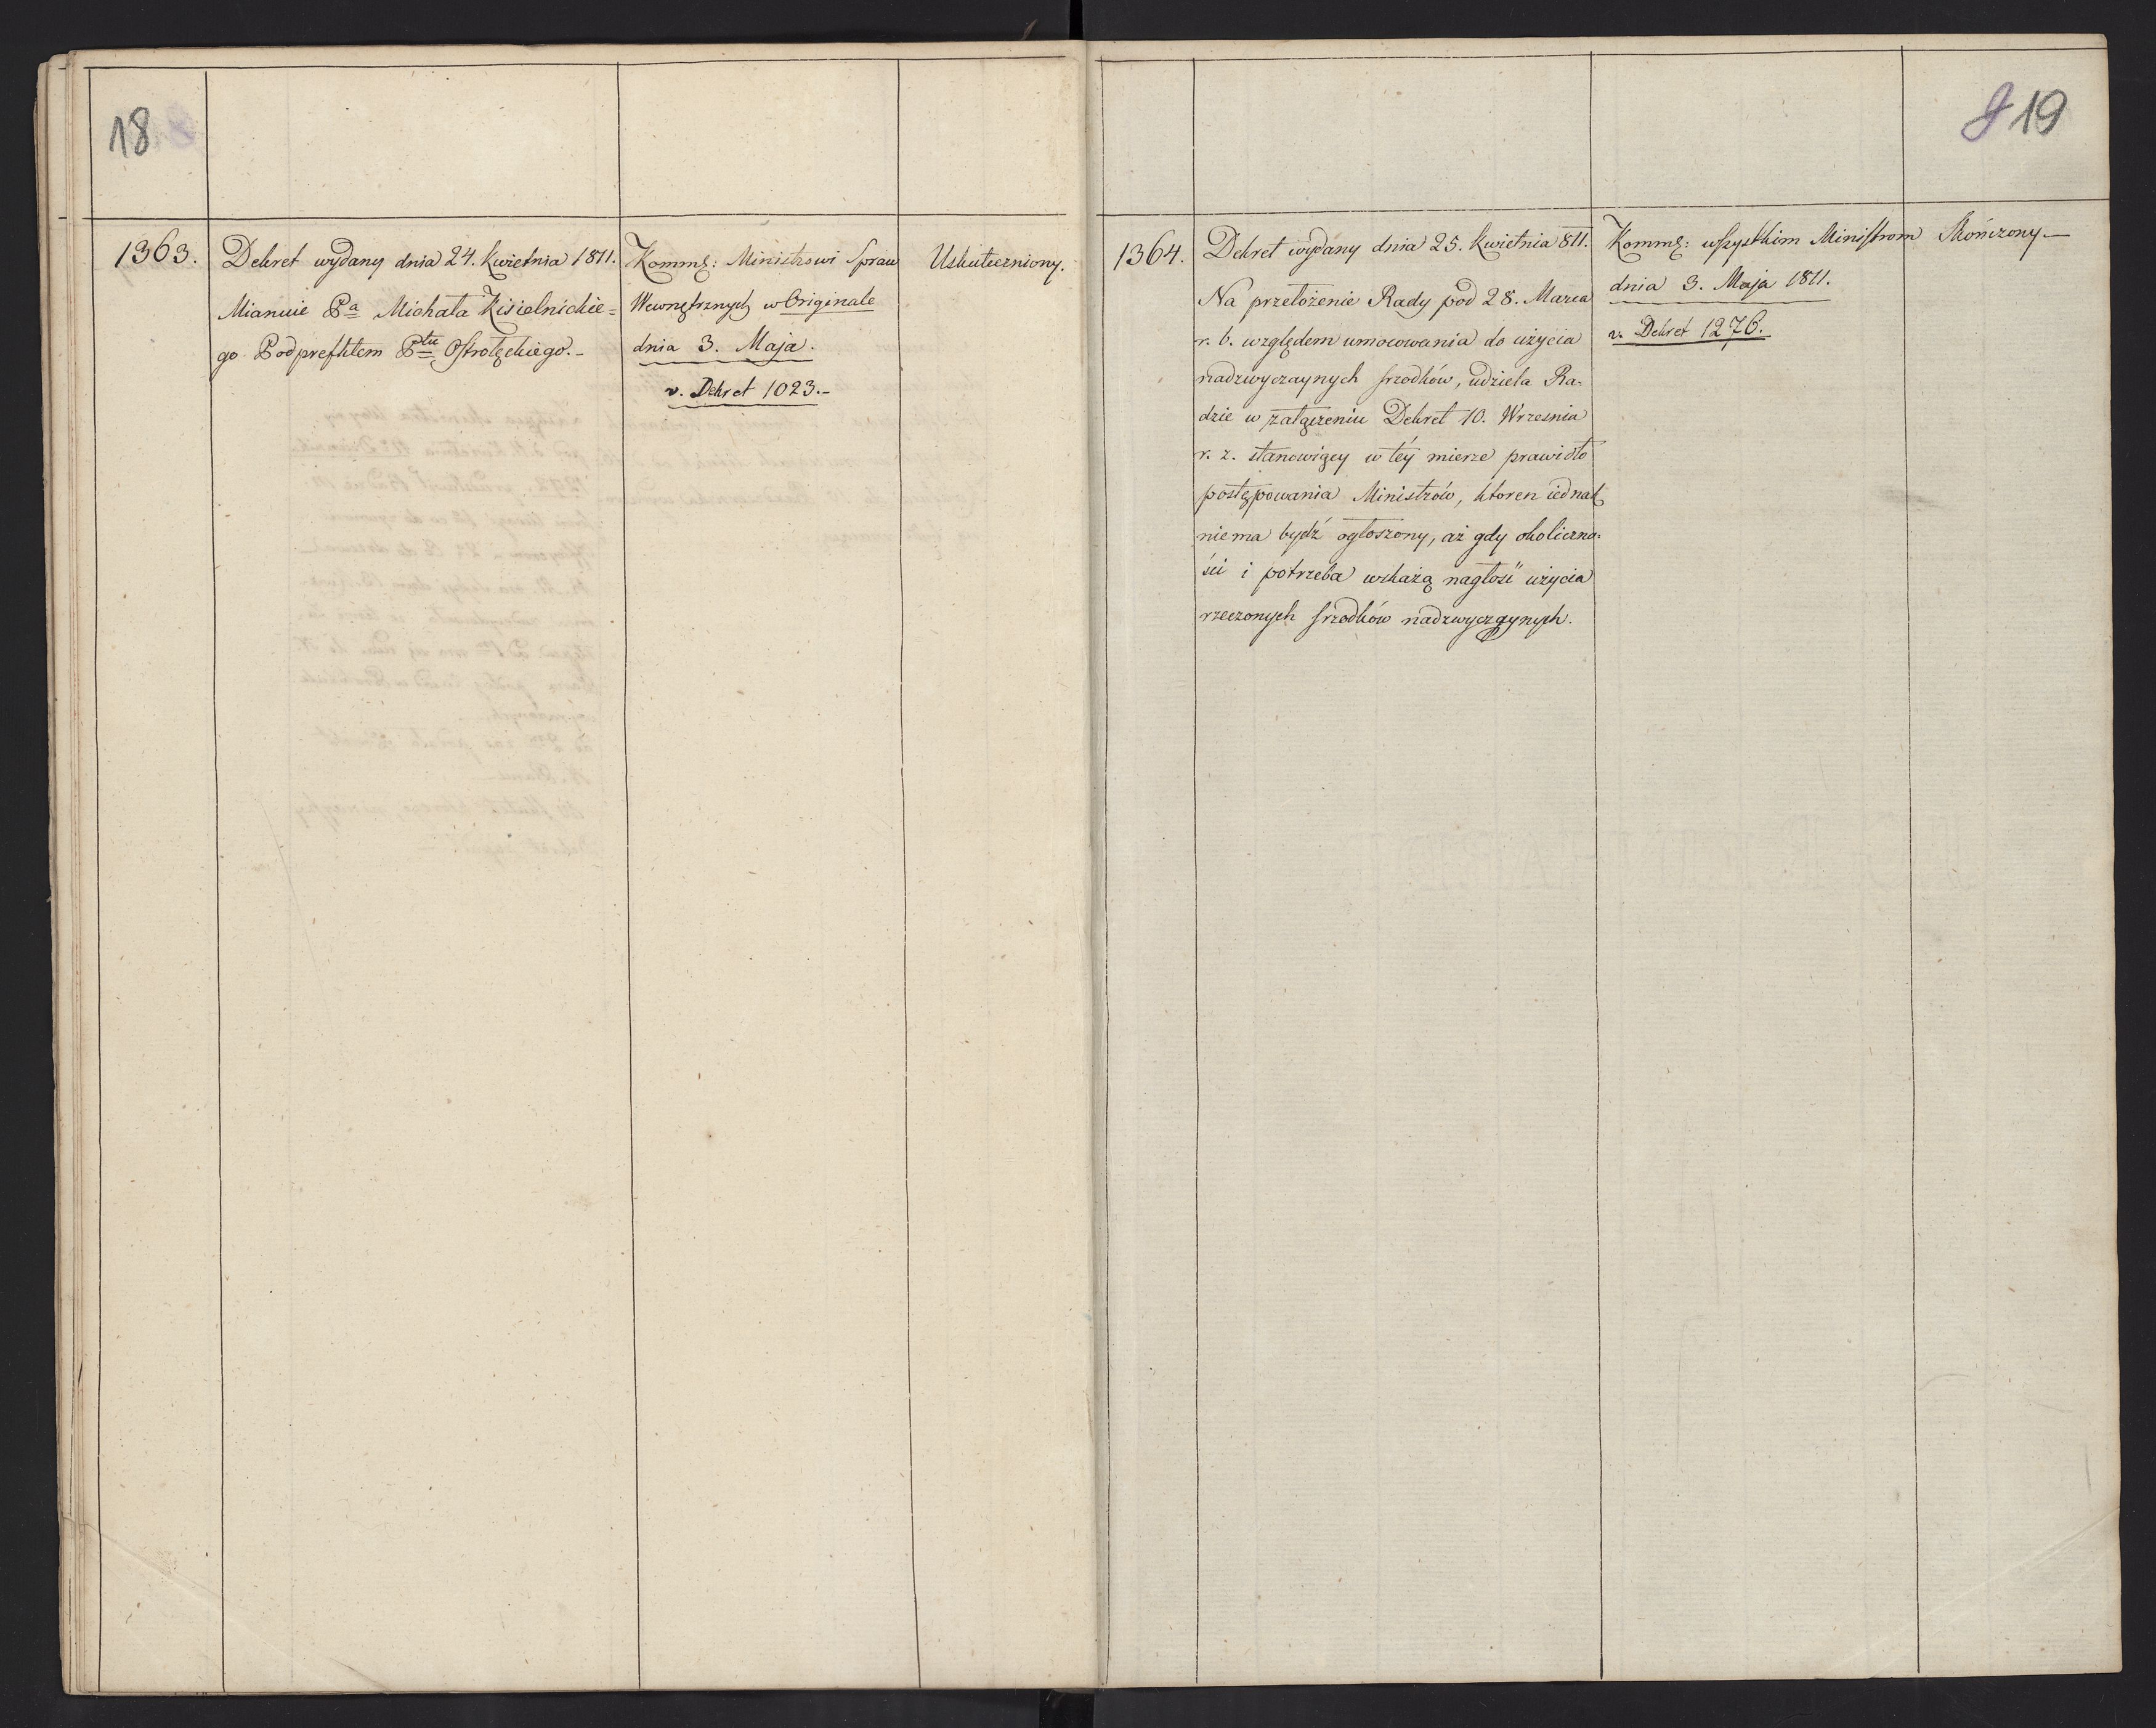 18
1363.
Dekret wydany dnia 24. Kwietnia 1811.
Mianuie Pa Michała Kisielnickie=
go Podprefektem Ptu Ostrołęckiego.-
Kommt: Ministrowi Spraw
Wewnętrznych w Originale
dnia 3. Maja.
v. Dekret 1023.-
Uskuteczniony.
19
1364.
Dekret wydany dnia 25. Kwietnia 811.
Na przełożenie Rady pod 28. Marca
r. b. względem umocowania do użycia
nadzwyczaynych srzodków, udziela Ra=
dzie w załączeniu Dekret 10. Wrzesnia
r. z. stanowiący w téy mierze prawidło
postępowania Ministrów, ktoren iednak
niema bydź ogłoszony, aż gdy okoliczno=
ści i potrzeba wskażą nagłość użycia
rzeczonych srzodków nadzwyczaynych.
Kommt: wszystkim Ministrom
dnia 3. Maja 1811.
v. Dekret 1276.
Skończony.—